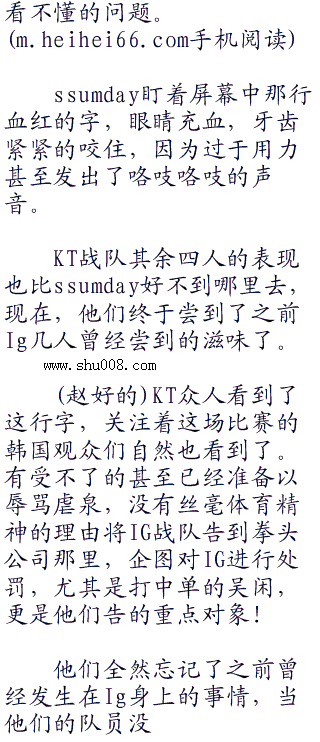 看不懂的问题。
(m.heihei66.com手机阅读)
ssumday盯着屏幕中那行
血红的字，眼睛充血，牙齿
紧紧的咬住，因为过于用力
甚至发出了咯吱咯吱的声
音。
KT战队其余四人的表现
也比ssumday好不到哪里去，
现在，他们终于尝到了之前
Ig几人曾经尝到的滋味了。
www.shu008.com
(赵好的)KT众人看到了
这行字，关注着这场比赛的
韩国观众们自然也看到了。
有受不了的甚至已经准备以
辱骂虐泉，没有丝毫体育精
神的理由将IG战队告到拳头
公司那里，企图对IG进行处
罚，尤其是打中单的吴闲，
更是他们告的重点对象！
他们全然忘记了之前曾
经发生在Ig身上的事情，当
他们的队员没